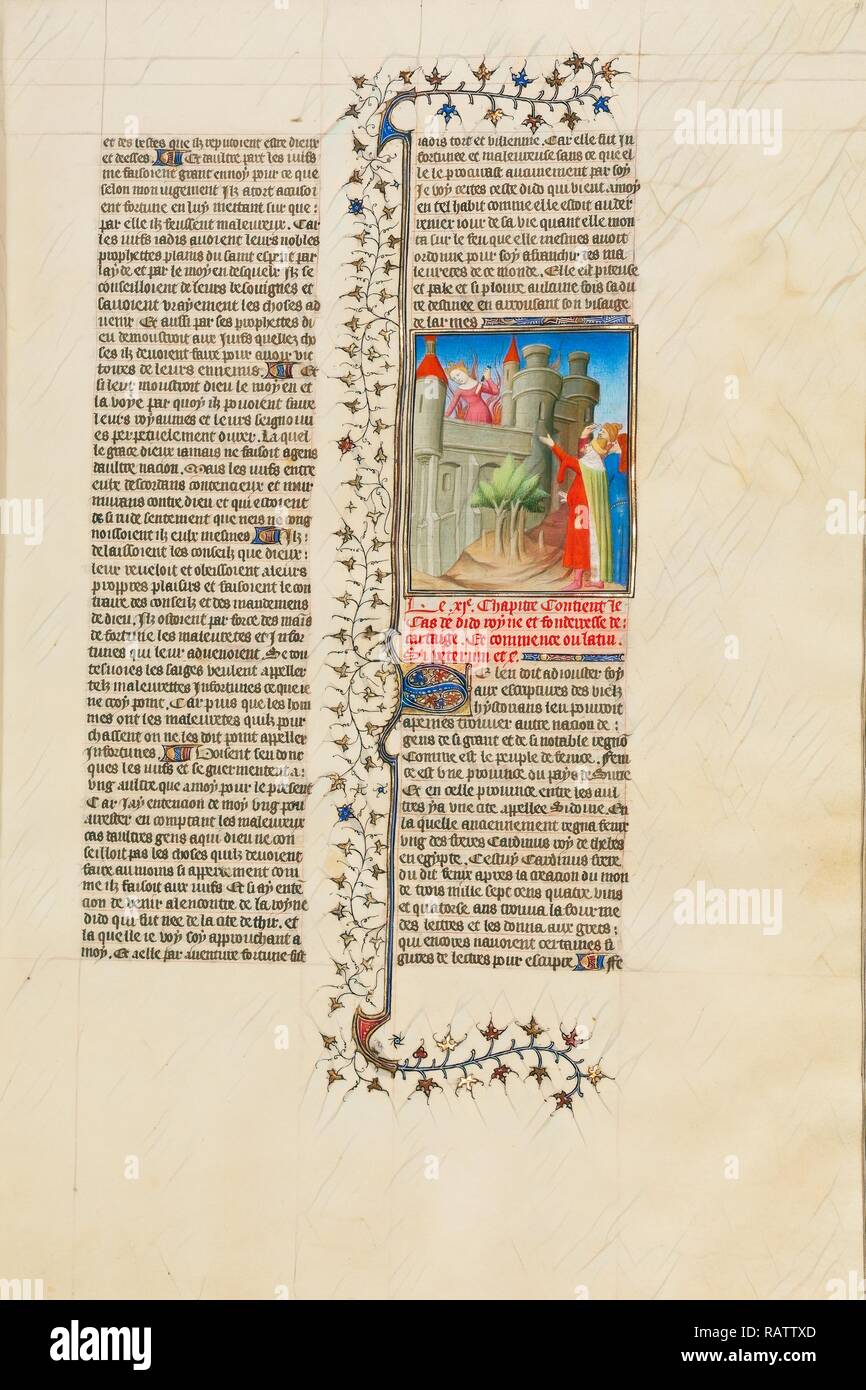 et des bestes que ilz reputoient estre dieux
et deesses. Et daultre part les iuifs
me faisoient grant ennoy pour ce que
selon mon iugement Ilz a tort accusoi
ent fortune en luy mettant sur que :
par elle ilz feussent maleureux. Car
les iuifs iadis auoient leurs nobles
prophettes plains du saint esperit par
layde et par le moyen desquelx Ilz se
conseilloient de leurs besoingnes et
sauoient vrayement les choses ad
uenir Et aussi par ses prophettes di
eu demoustroit aux Juifs quelles cho
ses ilz deuoient faire pour auoir vic
toires de leurs ennemis. Et
si leur moustroit dieu le moyen et
la voye par quoy ilz pouoient faire
leurs royaumes et leurs seignouri
es perpetuelement durer. La quel
le grace dieu iamais ne faisoit a gens
daultre nacion. Mais les iuifs entre
eulx descordans contencieux et mur
murans contre dieu et qui estoient
de si rude sentement que neis ne cong
noissoient ilz eulx mesmes Ilz :
delaissoient les conseilz que dieux :
leur reueloit et obeissoient a leurs
propres plaisirs et faisoient le con
traire des conseilz et des mandemens
de dieu. Ilz ostoient par force des mais
de fortune les maleuretes et Infor
tunes qui leur aduenoient. Se tou
tesuoies les saiges veulent appeller
telz maleurettes Infortunes ce que ie
ne croy point. Car puis que les hom
mes ont les maleuretes quilz pour
chassent on ne les doit point appeller
Infortunes. Voisent sen donc
ques les iuifs et se guermentent a :
vng aultre que a moy pour le present
Car Jay entencion de moy vng pou
arrester en comptant les maleureux
cas daultres gens a qui dieu ne con
seilloit pas les choses quilz deuoient
faire au moins si appertement com
me il faisoit aux iuifs Et si ay enten
cion de venir a lencontre de la royne
dido qui fut nee de la cite de thir. et
la quelle ie voy soy approuchant a
moy. Et a elle par auenture fortune fist
iadis tort et villennie. Car elle fut In
fortunee et maleureuse sans ce que el
le le procurast aucunement par soy
Je voy certes ceste dido qui vient a moy
en tel habit comme elle estoit au der
renier iour de sa vie quant elle mon
ta sur le feu que elle mesmes auoit
ordonne pour soy afranchir des ma
leuretes de ce monde. Elle est piteuse
et pale et si ploure aucune fois sa du
re destinee en arrousant son visaige
de larmes
Le .xie. Chapitre Contient le
Cas de dido royne et fonderesse de :
cartaige. Et commence ou latin.
Si veterum et c.
Se len doit adiouster foy
aux escriptures des vielz
hystorians len pourroit
apeines trouuer autre nacion de :
gens de si grant et de si notable regno
Comme est le peuple de fenice. Feni
ce est vne prouince du pays de Surie
Et en celle prouince entre les aul
tres y a vne cite appellee Sidoine. En
la quelle anciennement regna fenix
vng des freres Cardinus roy de thebes
en egypte. Cestuy Cardinus frere
du dit fenix apres la creacion du mon
de trois mille sept cens quatre vins
et quatorse ans trouua la fourme
des lettres et les donna aux grecs :
qui encores nauoient certaines fi
gures de lectres pour escripre Fe
alamy
Image ID: RATTXD
www.alamy.com